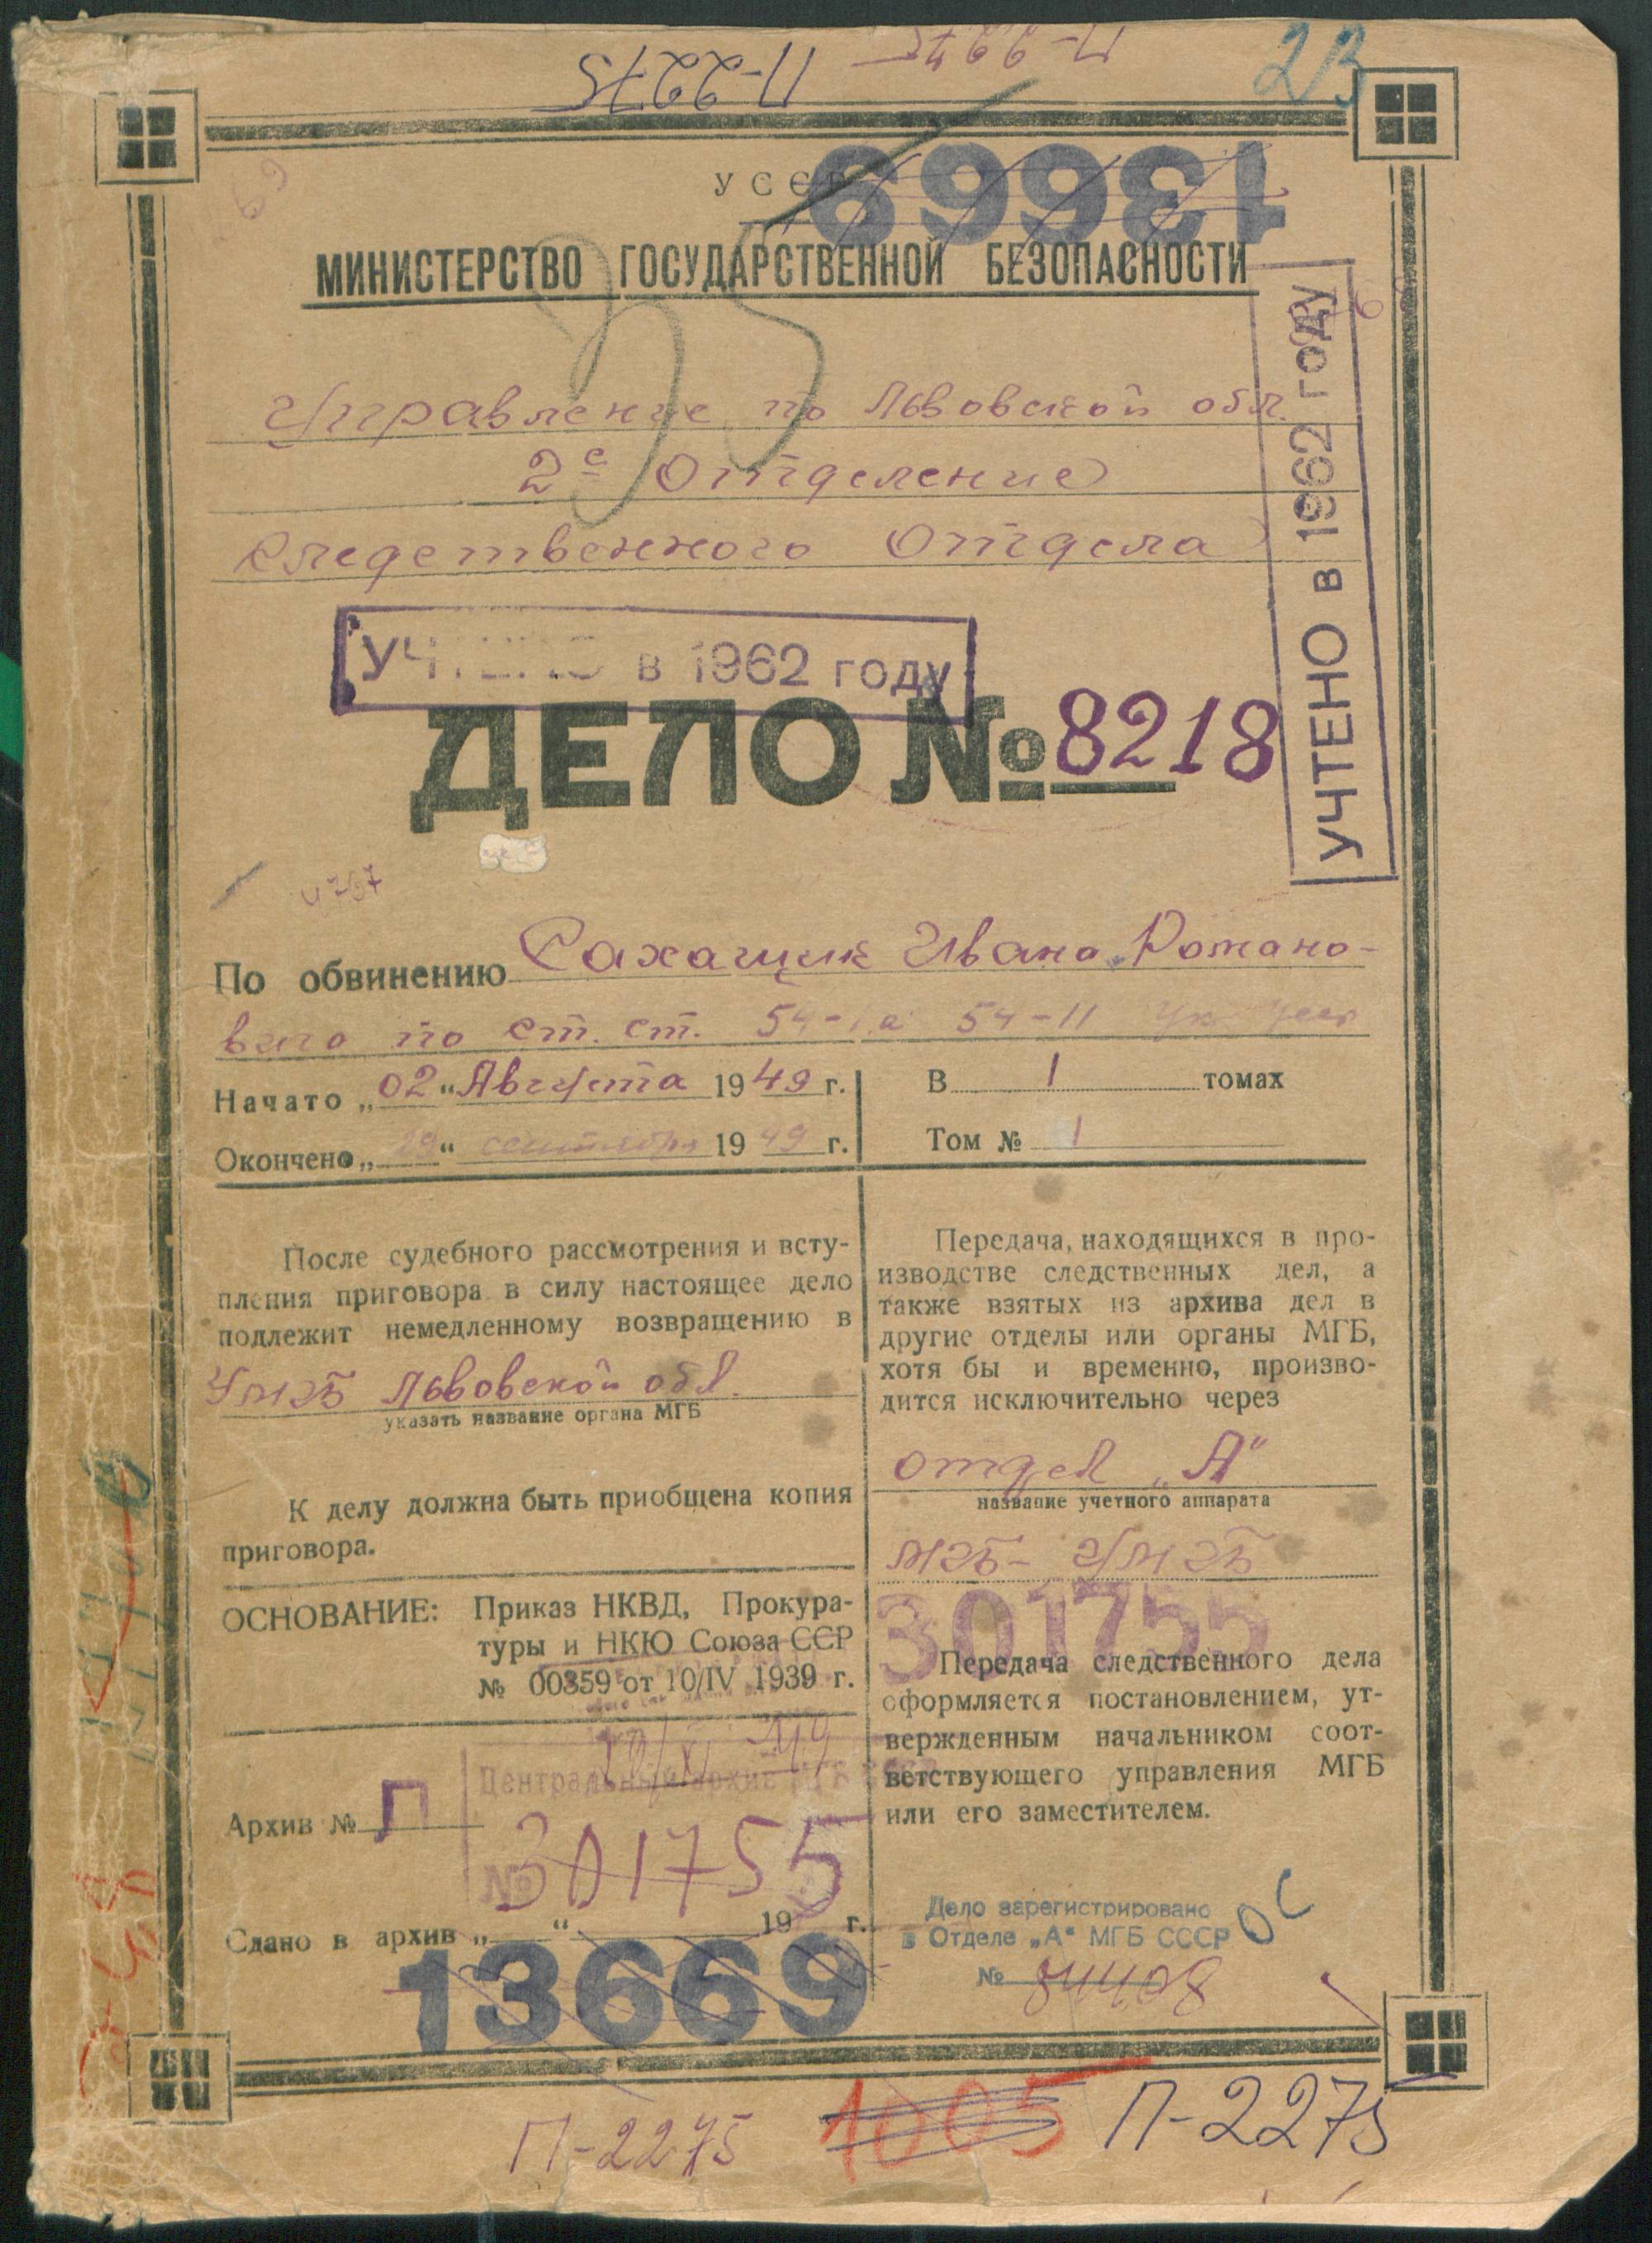 П-2275
П-2275
23
УССР
13669
МИНИСТЕРСТВО ГОСУДАРСТВЕННОЙ БЕЗОПАСНОСТИ
Управление по Львовской обл.
2е Отделение
Следственного Отдела
УЧТЕНО в 1962 году
УЧТЕНО в 1962 году
ДЕЛО № 8218
По обвинению Сахащик Ивана Романо-
вича по ст. ст. 54-1а 54-11 УК УССР
Начато „02" Августа 1949 г.
Окончено „29" сентября 1949 г.
В 1 томах
Том № 1
После судебного рассмотрения и всту-
пления приговора в силу настоящее дело
подлежит немедленному возвращению в
УМГБ Львовской обл.
указать название органа МГБ
К делу должна быть приобщена копия
приговора.
ОСНОВАНИЕ: Приказ НКВД, Прокура-
туры и НКЮ Союза ССР
№ 00359 от 10/IV 1939 г.
Архив № П
Центральный архив
№ 301755
Сдано в архив „ " 19 г.
13669
Передача, находящихся в про-
изводстве следственных дел, а
также взятых из архива дел в
другие отделы или органы МГБ,
хотя бы и временно, произво-
дится исключительно через
отдел „А"
название учетного аппарата
МГБ-УМГБ
301755
Передача следственного дела
оформляется постановлением, ут-
вержденным начальником соот-
ветствующего управления МГБ
или его заместителем.
Дело зарегистрировано
в Отделе „А" МГБ СССР
ОС
№
П-2275
1005
П-2275